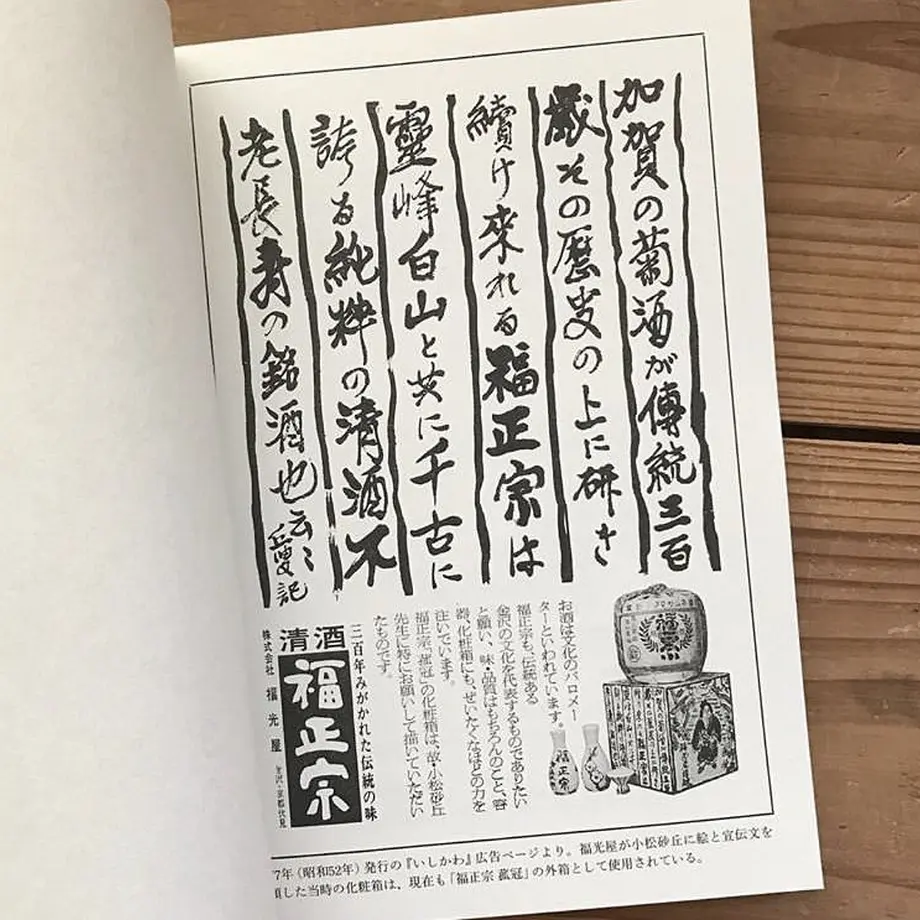 加賀の菊酒が傳統三百
歳その歴史の上に研き
續け来れる福正宗は
靈峰白山と共に千古に
誇る純粋の清酒不
老長寿の銘酒也云々
記
お酒は文化のバロメー
ターといわれています。
福正宗も、伝統ある
金沢の文化を代表するものでありたい
と願い、味・品質はもちろんのこと、容
器、化粧箱にも、ぜいたくなほどの力を
注いでいます。
福正宗「菰冠」の化粧箱は、故・小松砂丘
先生に特にお願いして描いていただい
たものです。
福正宗
三百年みがかれた伝統の味
清酒
福正宗
株式会社 福光屋 金沢・京都伏見
7年（昭和52年）発行の『いしかわ』広告ページより。福光屋が小松砂丘に絵と宣伝文を
頼した当時の化粧箱は、現在も「福正宗 菰冠」の外箱として使用されている。